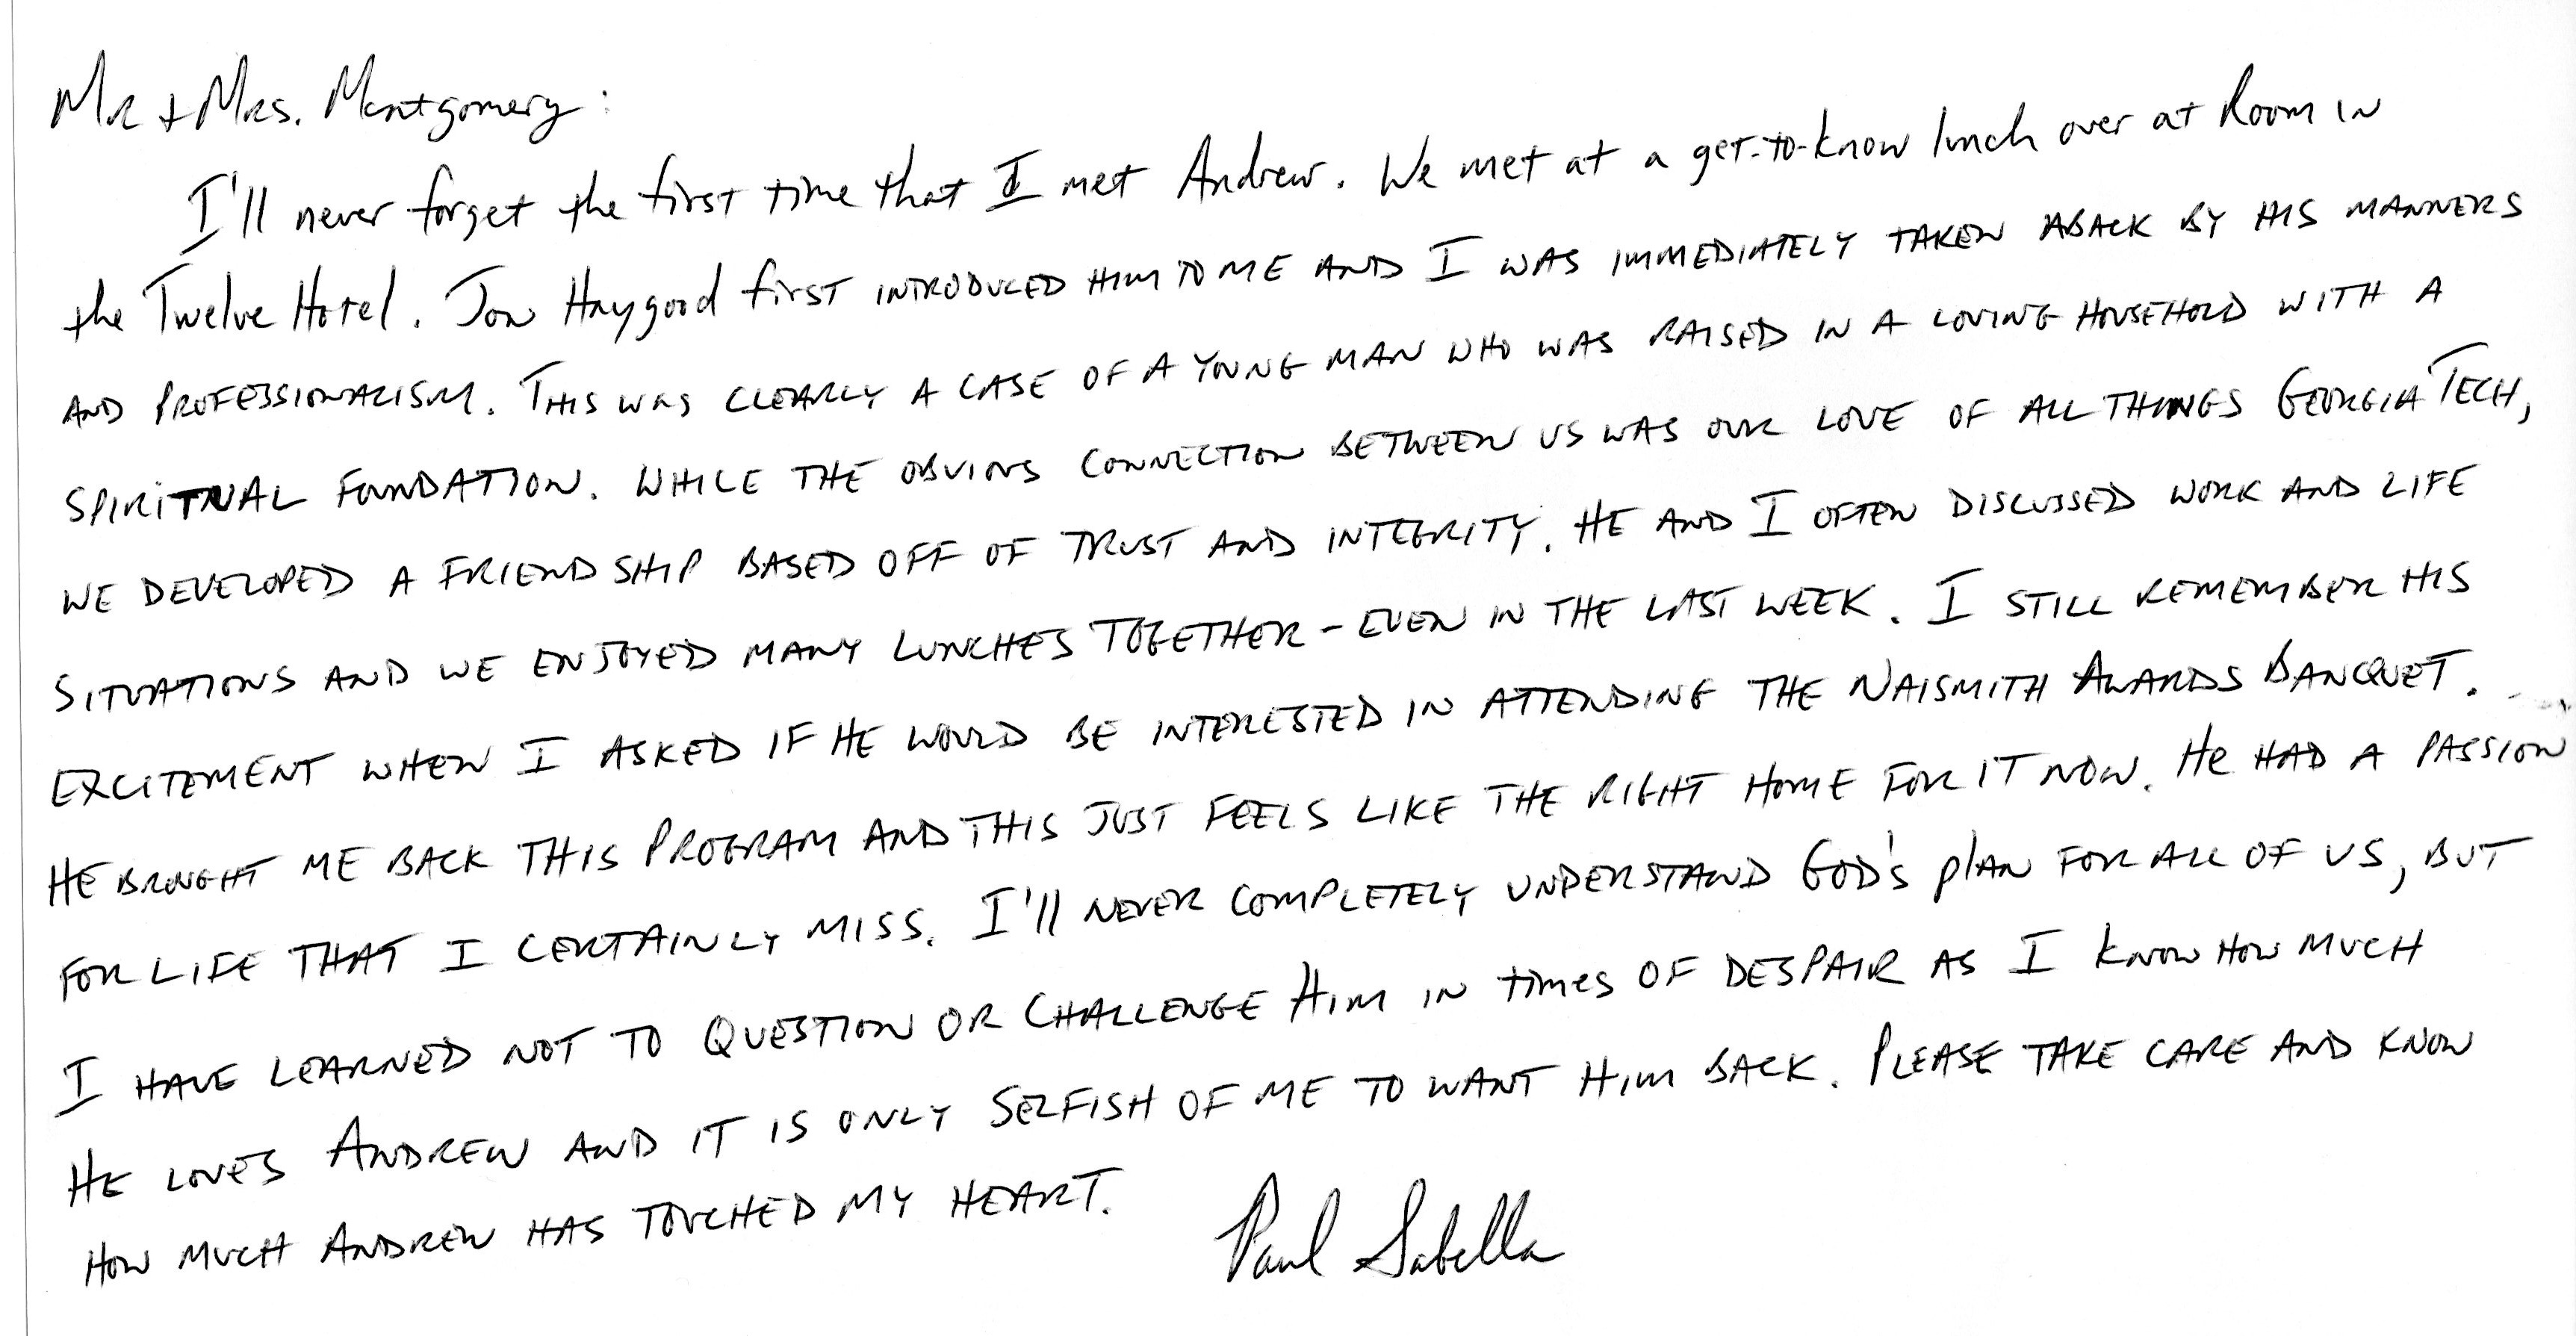 Mr + Mrs. Montgomery:
I'll never forget the first time that I met Andrew. We met at a get-to-know lunch over at Room in
the Twelve Hotel. Jon Haygood first INTRODUCED HIM TO ME AND I WAS IMMEDIATELY TAKEN ABACK BY HIS MANNERS
AND PROFESSIONALISM. THIS WAS CLEARLY A CASE OF A YOUNG MAN WHO WAS RAISED IN A LOVING HOUSEHOLD WITH A
SPIRITUAL FOUNDATION. WHILE THE OBVIOUS CONNECTION BETWEEN US WAS OUR LOVE OF ALL THINGS GEORGIA TECH,
WE DEVELOPED A FRIENDSHIP BASED OFF OF TRUST AND INTEGRITY. HE AND I OFTEN DISCUSSED WORK AND LIFE
SITUATIONS AND WE ENJOYED MANY LUNCHES TOGETHER - EVEN IN THE LAST WEEK. I STILL REMEMBER HIS
EXCITEMENT WHEN I ASKED IF HE WOULD BE INTERESTED IN ATTENDING THE NAISMITH AWARDS BANCQUET.
HE BROUGHT ME BACK THIS PROGRAM AND THIS JUST FEELS LIKE THE RIGHT HOME FOR IT NOW. He HAD A PASSION
FOR LIFE THAT I CERTAINLY MISS. I'll NEVER COMPLETELY UNDERSTAND GOD's plAN FOR ALL OF US, BUT
I HAVE LEARNED NOT TO QUESTION OR CHALLENGE HIM IN times OF DESPAIR AS I KNOW HOW MUCH
HE LOVES ANDREW AND IT IS ONLY SELFISH OF ME TO WANT HIM BACK. PLEASE TAKE CARE AND KNOW
HOW MUCH ANDREW HAS TOUCHED MY HEART.
Paul Sabella